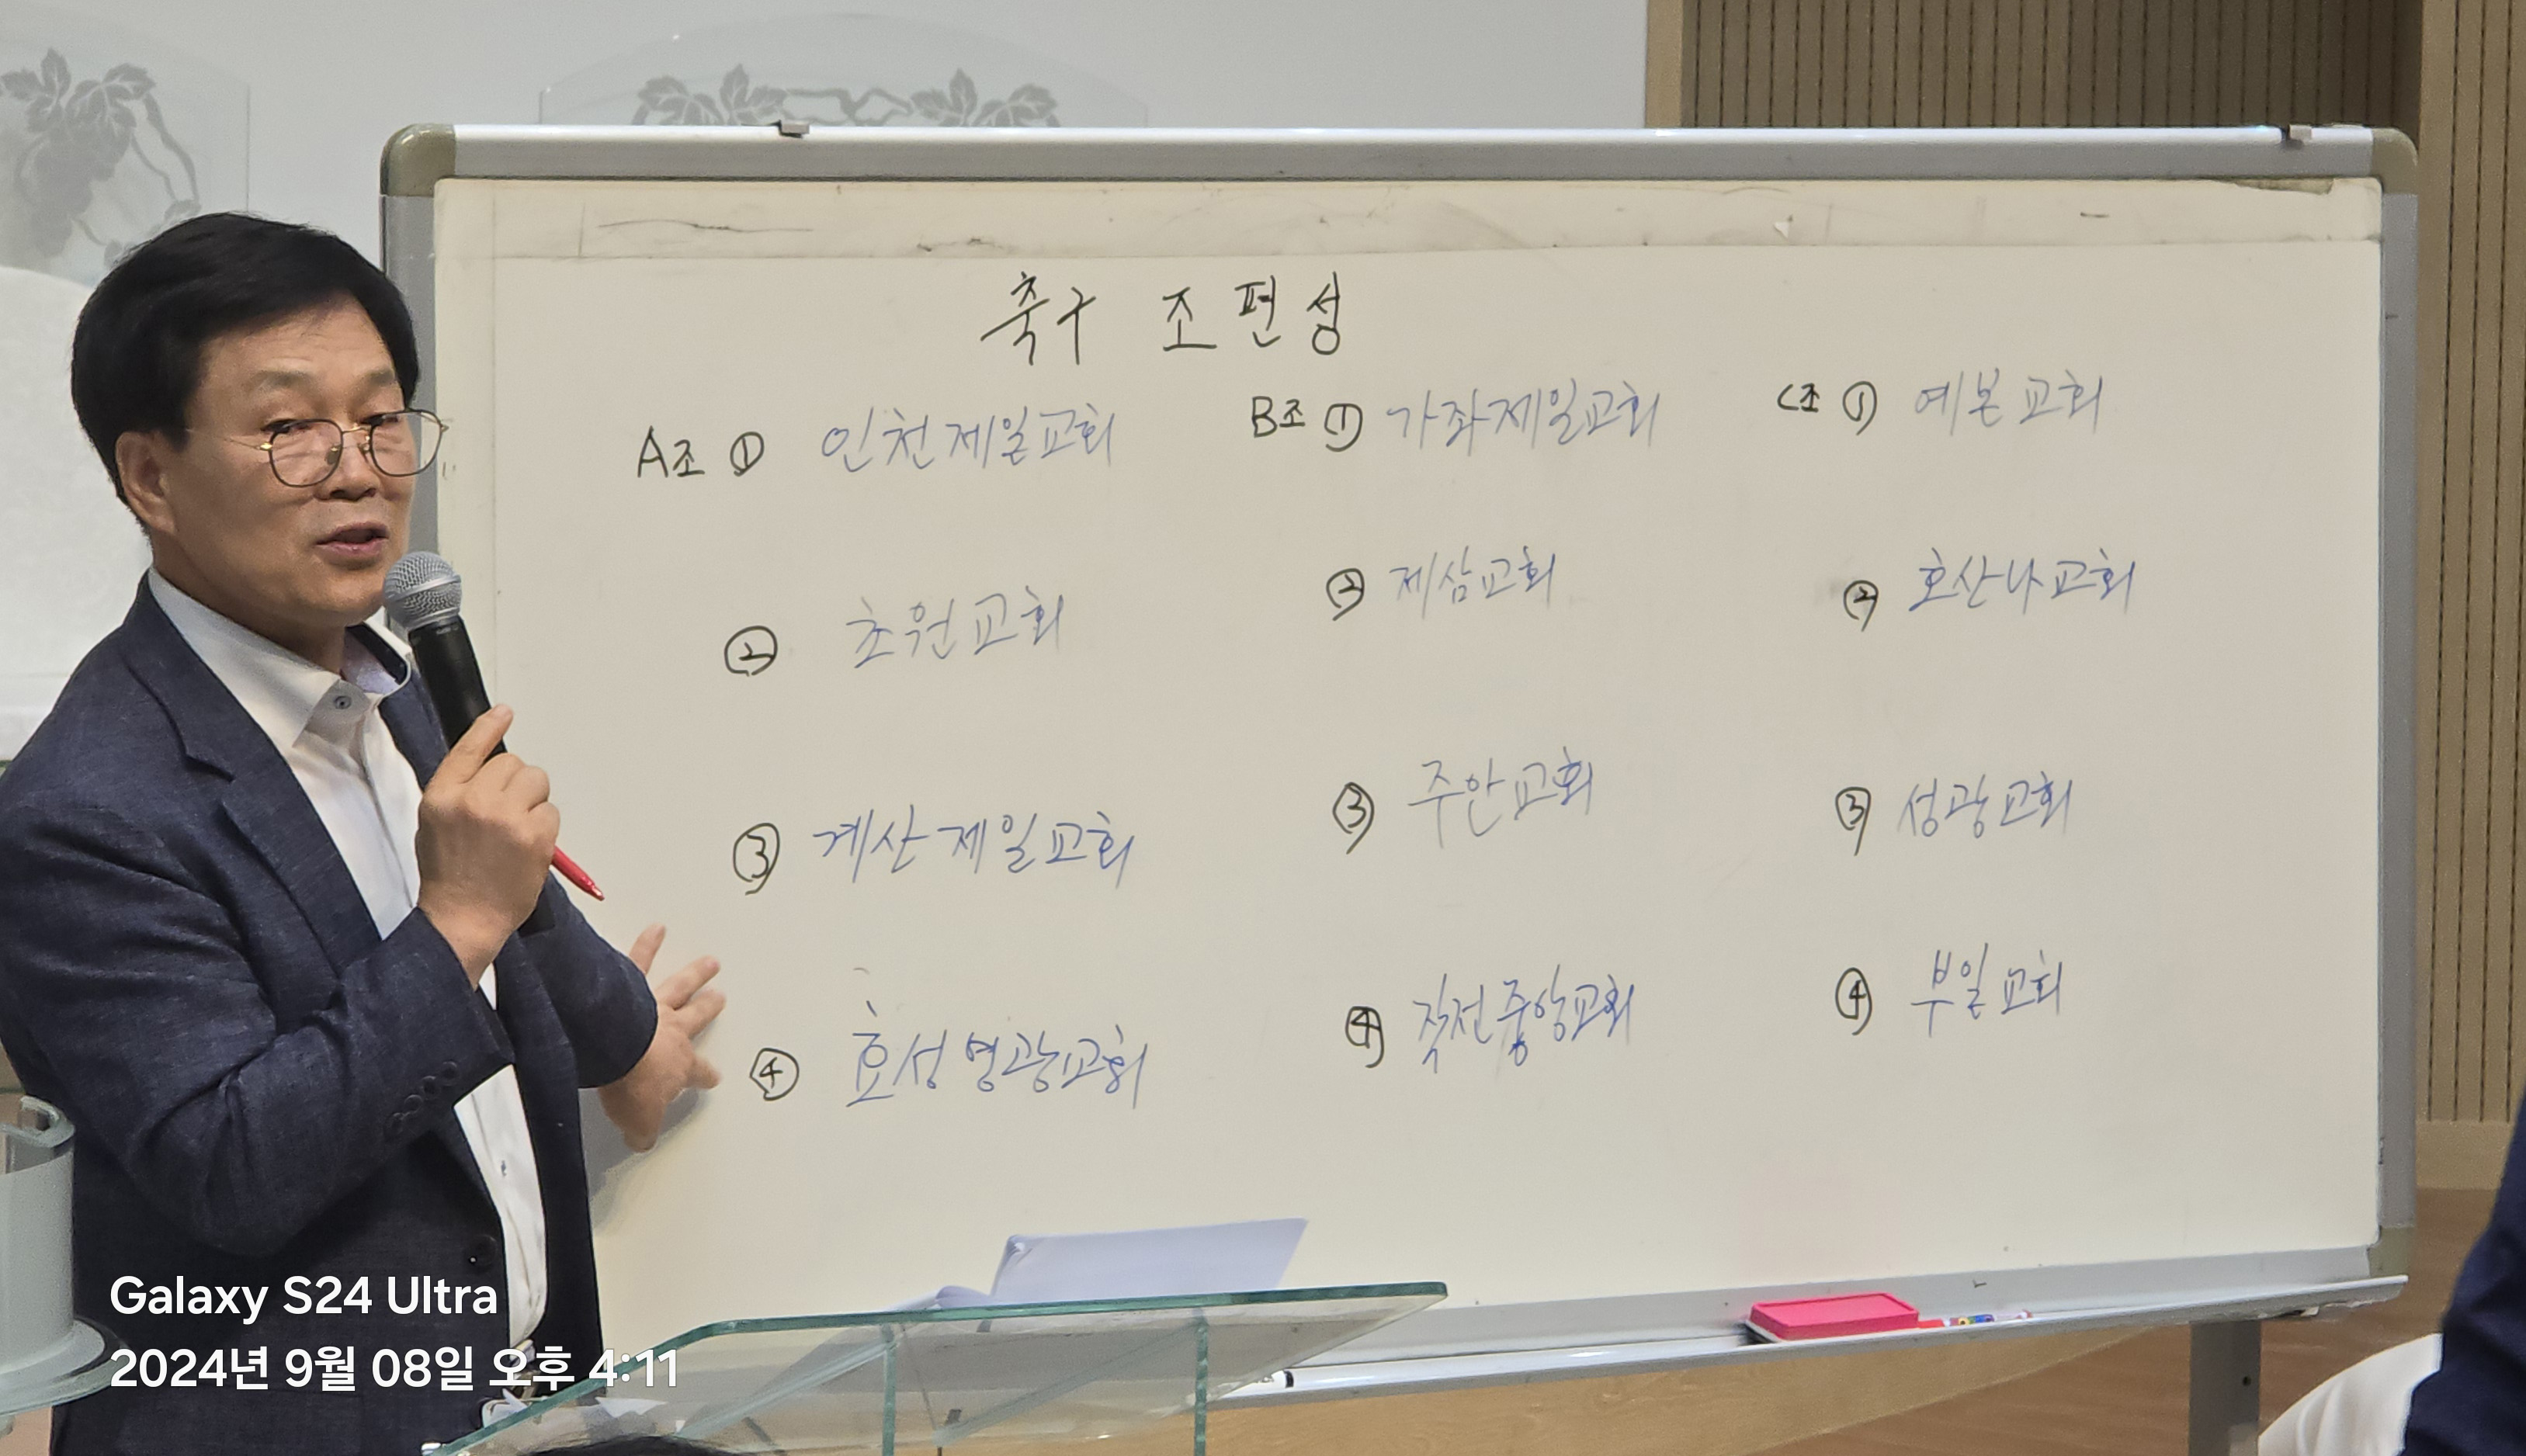 축구 조 편성
A조 ① 인천제일교회
② 초원교회
③ 계산제일교회
④ 효성영광교회
B조 ① 가좌제일교회
② 제삼교회
③ 주안교회
④ 작전중앙교회
C조 ① 예본교회
② 호산나교회
③ 성광교회
④ 부일교회
Galaxy S24 Ultra
2024년 9월 08일 오후 4:11